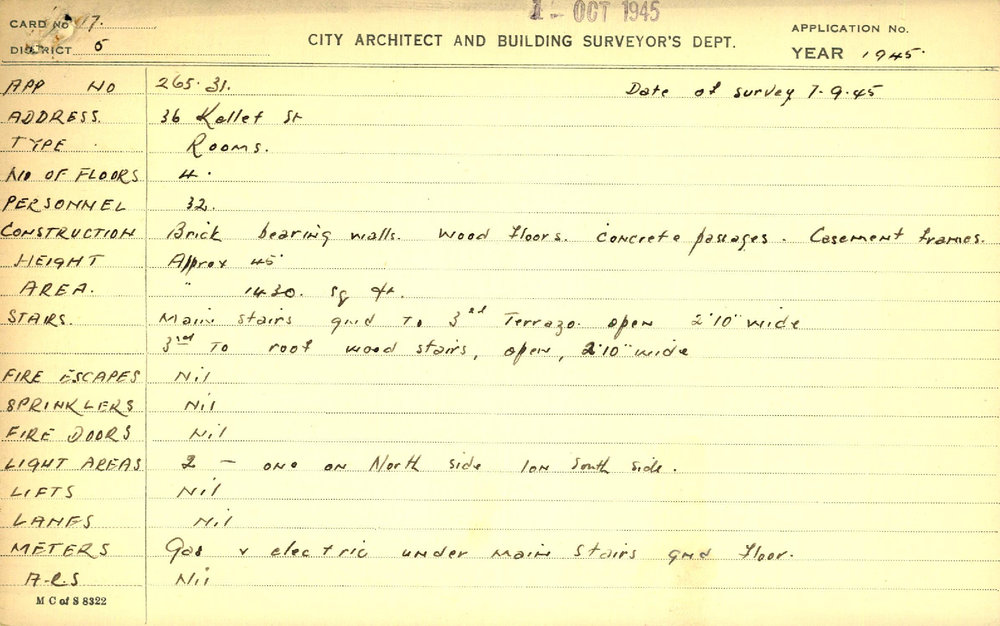 1 - OCT 1945
CARD No 17.
DISTRICT 5
CITY ARCHITECT AND BUILDING SURVEYOR'S DEPT.
APPLICATION No.
YEAR 1945.
APP NO 265.31. Date of survey 7.9.45
ADDRESS. 36 Kellet St
TYPE. Rooms.
NO OF FLOORS 4.
PERSONNEL 32.
CONSTRUCTION Brick bearing walls. Wood floors. Concrete passages. Casement frames.
HEIGHT Approx 45'
AREA. " 1430. sq ft.
STAIRS. Main stairs gnd To 3rd Terrazo. open 2'10" wide
3rd To roof wood stairs, open, 2'10" wide
FIRE ESCAPES Nil
SPRINKLERS Nil
FIRE DOORS Nil
LIGHT AREAS 2 - one on North side 1 on South side.
LIFTS Nil
LANES Nil
METERS Gas & electric under main stairs gnd floor.
A.R.S Nil
M C of S 8322